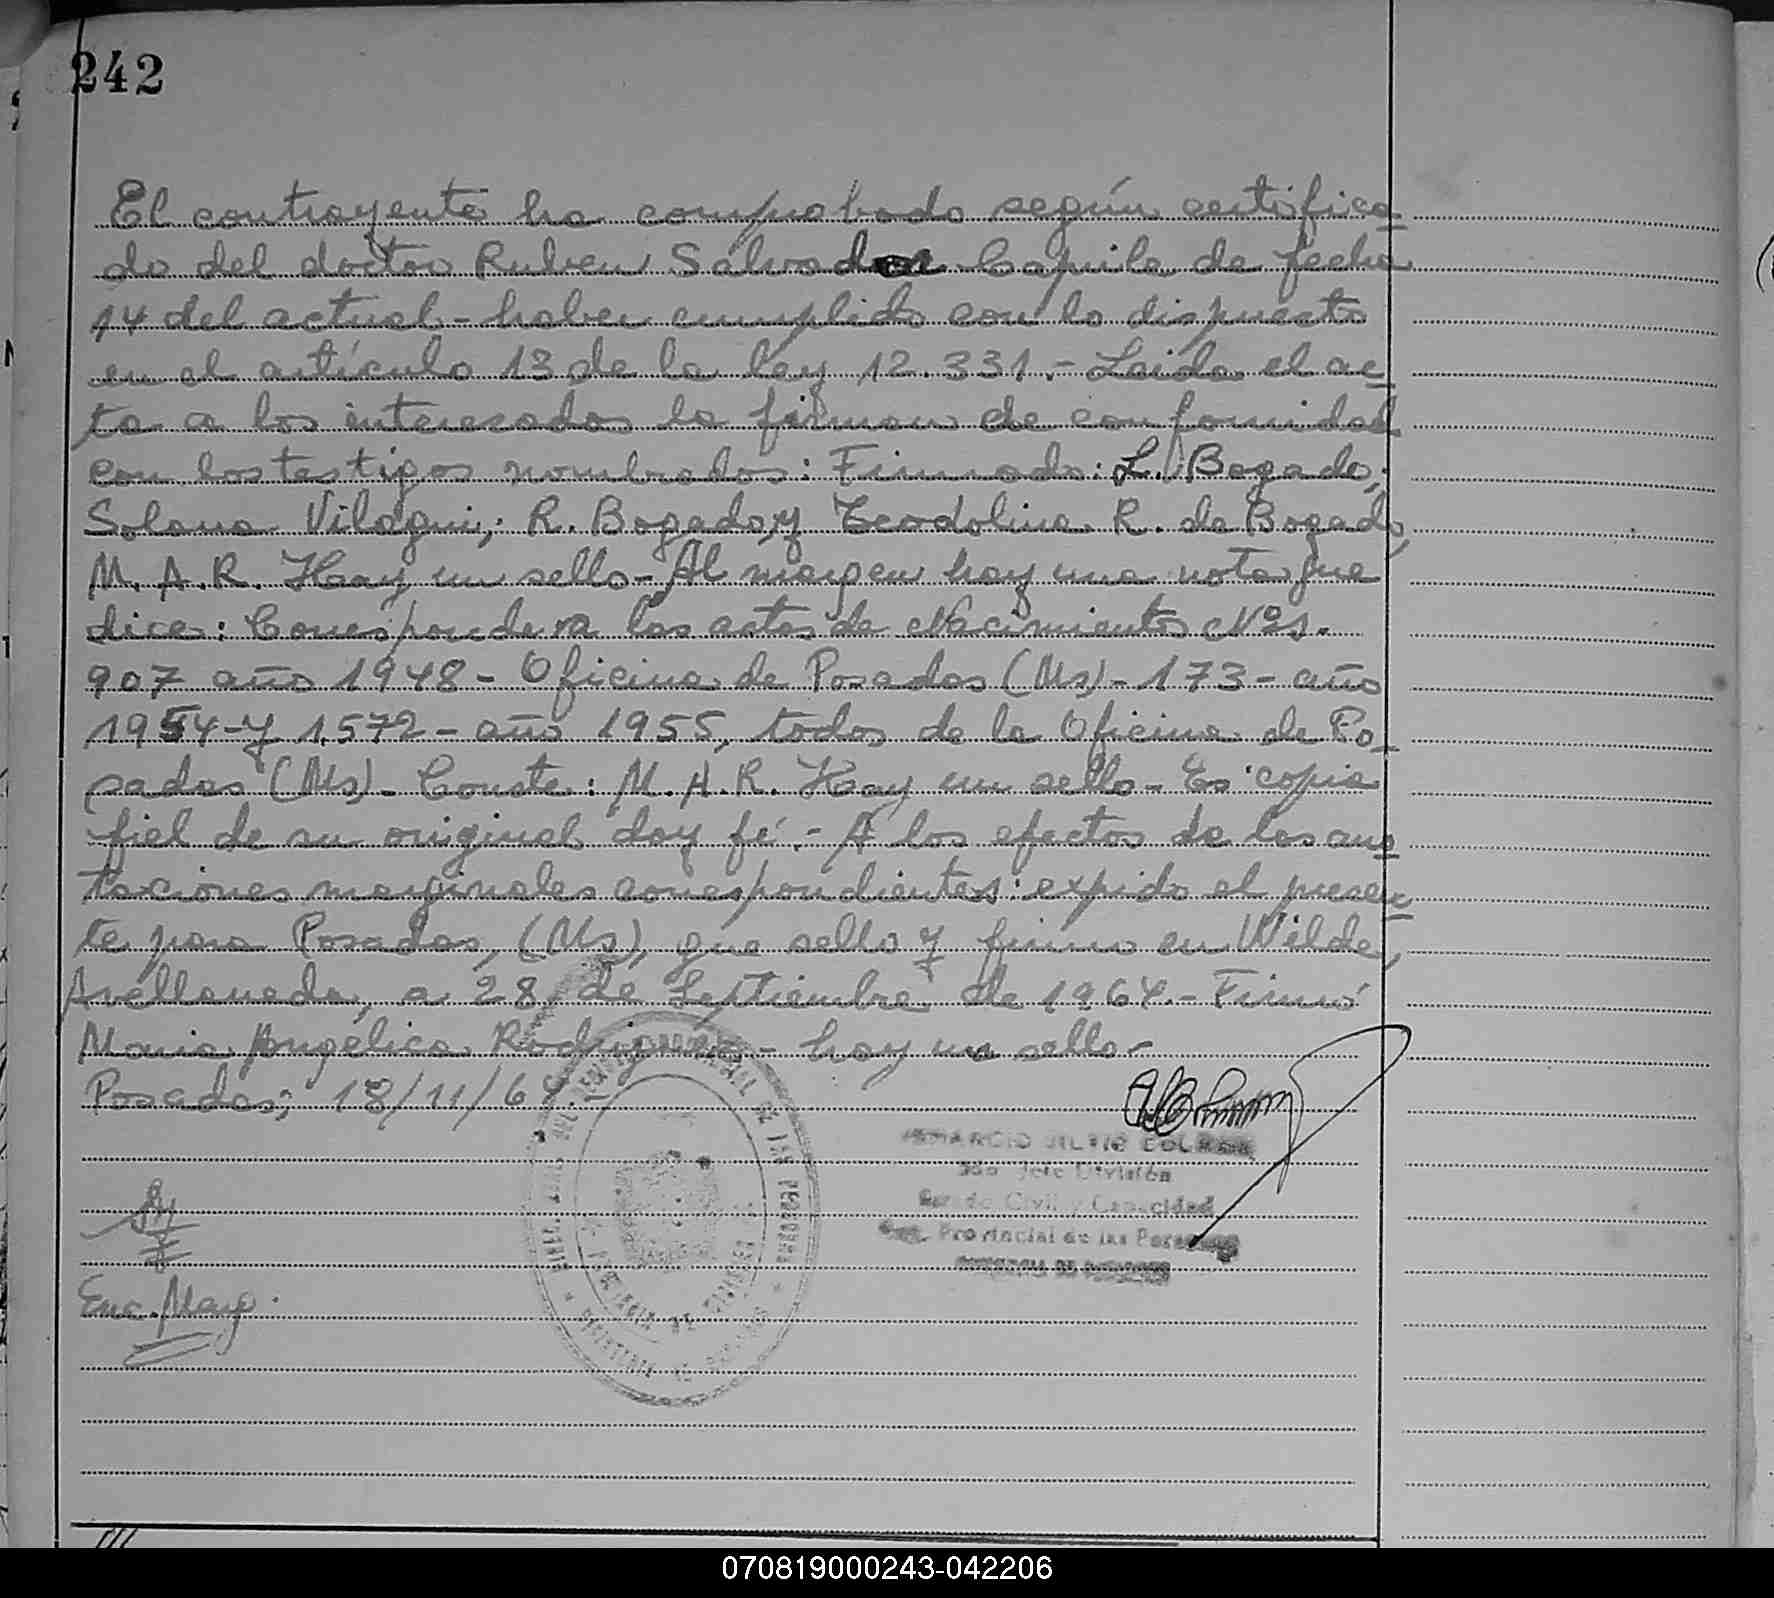 242
El contrayente ha comprobado según certifica
do del doctor Ruben Salvador Capila de fecha
14 del actual - haber cumplido con lo dispuesto
en el artículo 13 de la ley 12.331.- Leida el ac-
ta a los interesados la firman de conformidad
con los testigos nombrados: Firmado: L. Bogado;
Solana Vilagui; R. Bogado y Teodolina R. de Bogado,
M. A. R. Hay un sello - Al margen hay una nota que
dice: Corresponden a las actas de Nacimientos Nºs.
907 año 1948 - Oficina de Posadas (Ms) - 173 - año
1954 - y 1.572 - año 1955, todos de la Oficina de Po-
sadas (Ms). Conste: M. A. R. Hay un sello - Es copia
fiel de su original doy fé.- A los efectos de las ano
taciones marginales correspondientes: expido el presen-
te para Posadas, (Ms), que sello y firmo en Wilde,
Avellaneda, a 28 de Septiembre de 1964.- Firmó
Maria Angélica Rodriguez - hay un sello -
Posadas; 18/11/64.-
División
Civil y Capacidad
Provincial de las
070819000243-042206